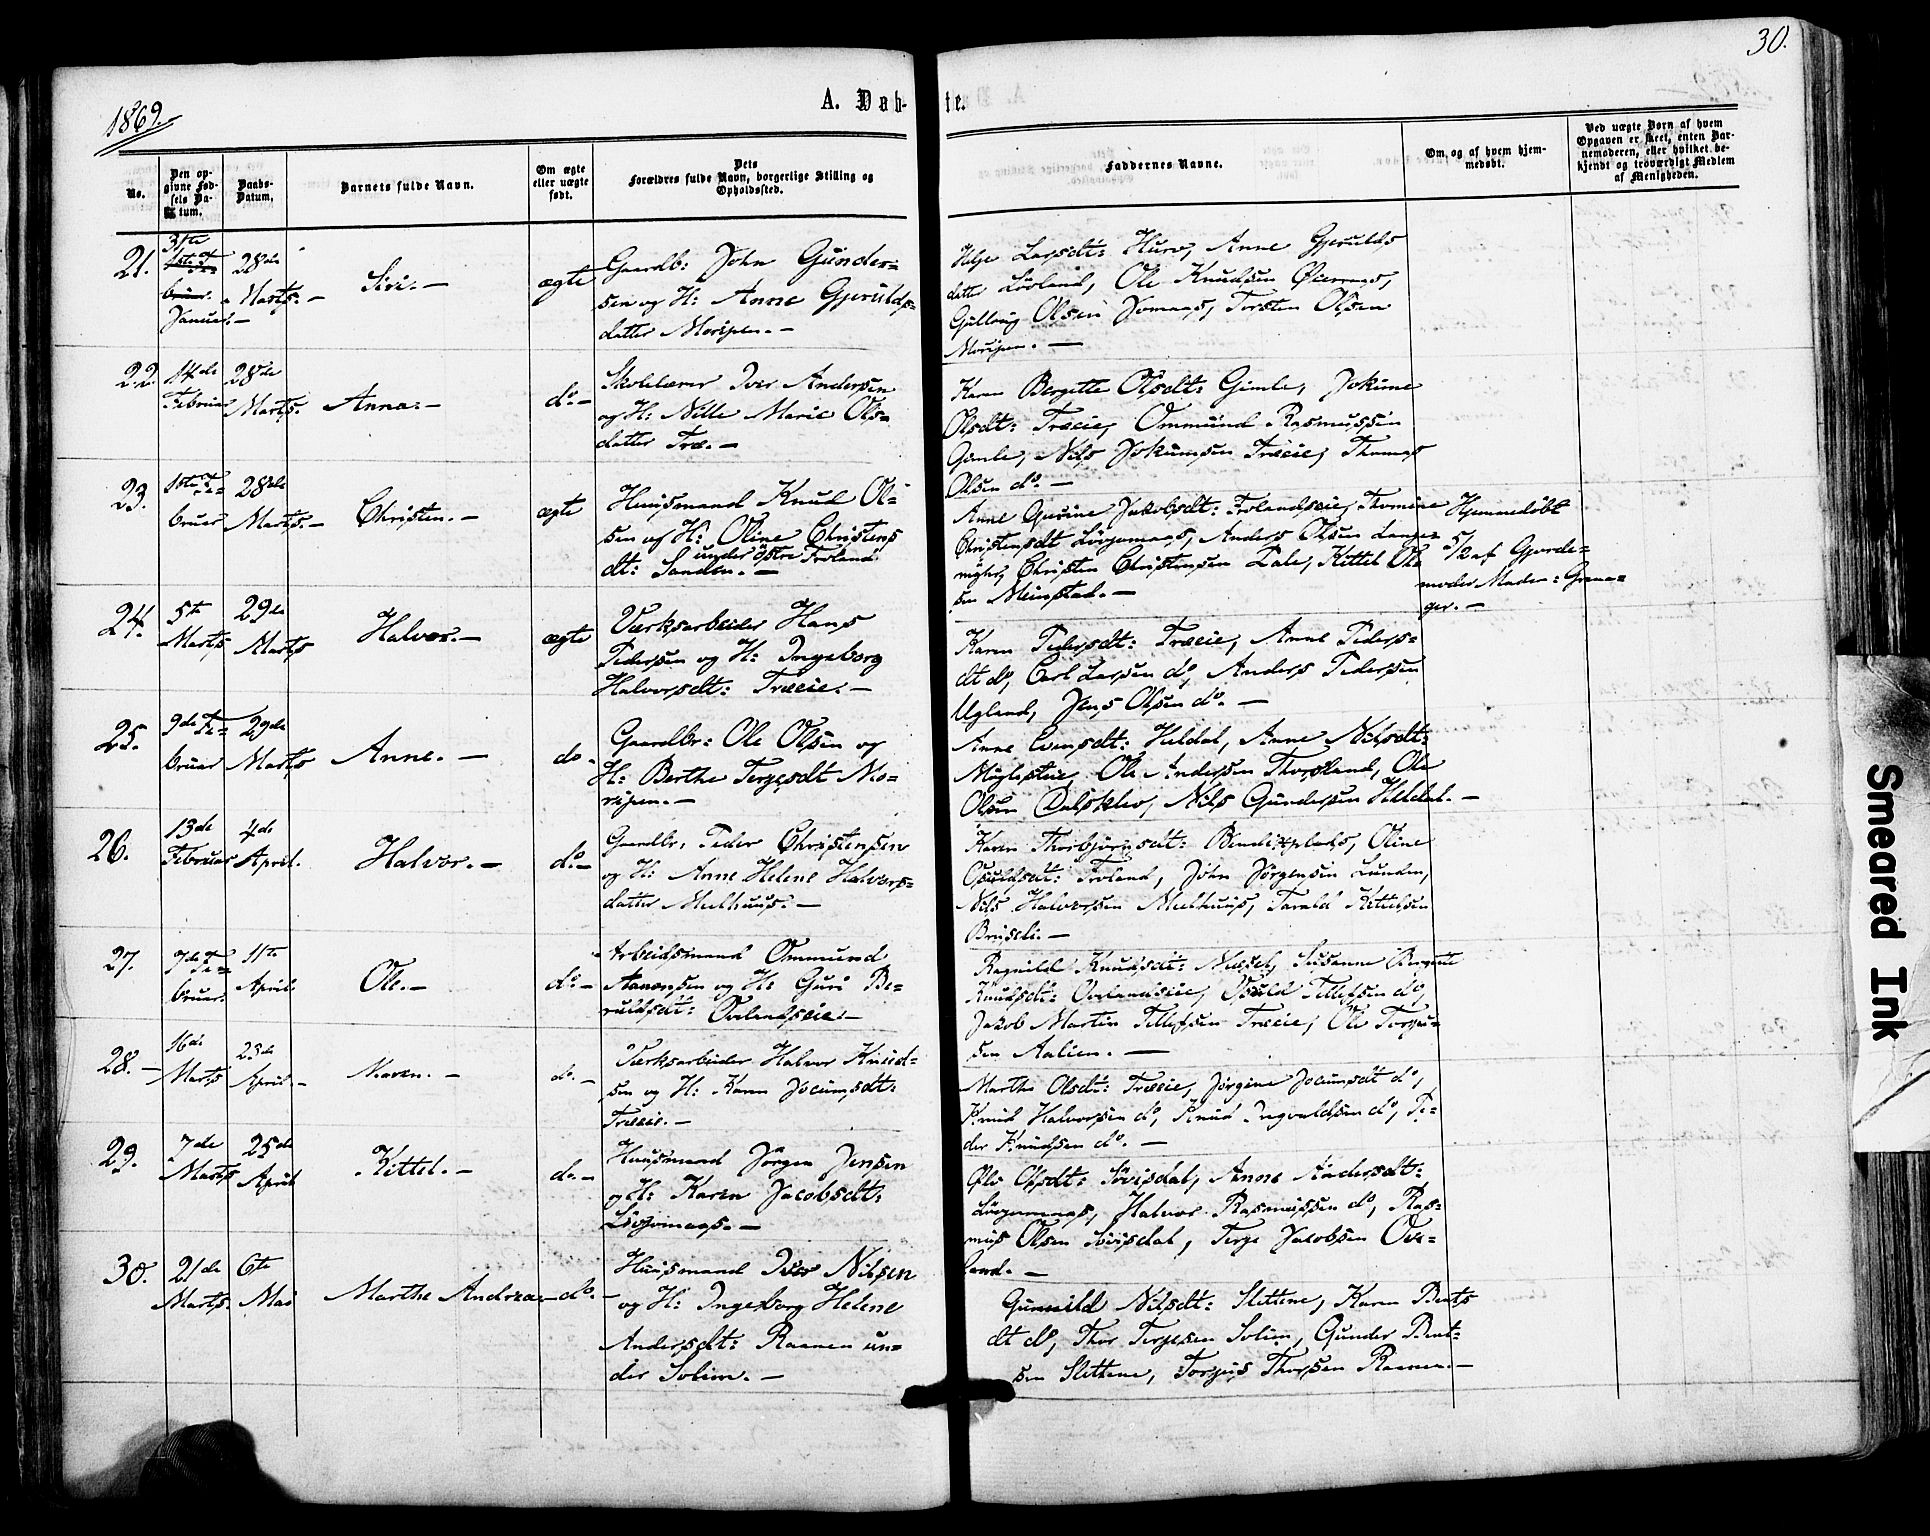 30.
1869.
A. Døb-
te.
No.
Den op-
givne Fød-
sels Da-
tum.
Daabs-
Datum.
Barnets fulde Navn.
Om ægte
eller uægte
født.
Dets
Forældres fulde Navn, borgerlige Stilling og
Opholdssted.
Faddernes Navne.
Om, og af hvem hjem-
medøbt.
Ved uægte Børn af hvem
Opgaven er skeet, enten Bar-
nemoderen, eller hvilket be-
kjendt og troværdigt Medlem
af Menigheden.
21.
31te
1ste Fe-
bruar.
Januar.-
28de
Marts.-
Siri.-
ægte
Gaardb: John Gunder-
sen og H: Anne Gjeruldsdatter
datter Moripen.-
Helje Larsdt: Hurv, Anne Gjerulds
datter Lövland, Ole Knudsen
Gullaug Olsen Jomaas, Torsten Olsen
Moripen.-
22.
14de
Februar
28de
Marts.
Anna.-
do-
Skolelærer Iver Andersen
og H: Nille Marie Ols-
datter Træ.-
Karen Bergitte Olsdt: Gimle, Jokume
Olsdt: Træeie, Ommund Rasmussen
Gimle, Nils Jokumsen Træeie, Thomas
Olsen do.-
23.
1ste Fe-
bruar
28de
Marts.-
Christen.-
ægte
Huusmand Knud Ol-
sen og H: Oline Christens
dt: Sanden.-
under östre Froland
Anne Gurine Jakobsdt: Frolandseie, Thomine
Christensdt Lövjomaas, Anders Olsen Lange-
myhr, Christen Christensen Dale, Kittel Ol-
sen Meinstad.-
Hjemmedöbt
5/2 af Gjorde-
moder Maden: Grana-
ger.-
24.
5te
Marts
29de
Marts
Halvor.-
ægte
Værksarbeider Hans
Pedersen og H: Ingeborg
Halvorsdt: Træeie.-
Karen Pedersdt: Træeie, Anne Peders-
dt do, Carl Larsen do, Anders Pedersen
Ugland, Jens Olsen do.-
25.
9de Fe-
bruar
29de
Marts
Anne.-
do-
Gaardbr: Ole Olsen og
H: Berthe Terjesdt Mo-
ripen.-
Anne Evensdt: Heldal, Anne Nilsdt:
Myglestue, Ole Andersen Thorsland, Ole
Olsen Dalsklev, Nils Gundersen Heldal.-
26.
13de
Februar
4de
April.
Halvor.-
do-
Gaardbr, Peder Christensen
og H: Anne Helene Halvors-
datter Mælhuus.-
Karen Thorbjörnsdt: Bendixplads, Oline
Osuldsdt: Froland, John Jörgensen Lunden,
Nils Halvorsen Mælhuus, Tarald Kittelsen
Bruseli.-
27.
7de Fe-
bruar.
11te
April.
Ole.-
do-
Arbeidsmand Ommund
Aanonsen og H: Guri Be-
ruldsdt: Ovelandseie.-
Ragnild Knudsdt: Messel, Susanne Bergitte
Knudsdt: Ovelandseie, Osuld Tellefsen do,
Jakob Martin Tellefsen Træeie, Ole Torju-
sen Aalien.-
28.-
16de
Marts
25de
April.-
Maren.-
do.-
Værksarbeider Halvor Knud-
sen og H: Karen Jocumsdt:
Træeie.-
Marthe Olsdt: Træeie, Jörgine Jocumsdt do,
Knud Halvorsen do, Knud Ingvaldsen do, Pe-
der Knudsen do.-
29.
7de
Marts
25de
April
Kittel.-
do-
Huusmand Jörgen Jensen
og H: Karen Jacobsdt:
Lövjomaas.-
Olsdt: Sövisdal, Anne Andersdt:
Lövjomaas, Halvor Rasmussen do, Ras-
mus Olsen Sövisdal, Terje Jacobsen Ove-
land.-
30.
21de
Marts.
6te
Mai
Marthe Andrea.-
do.-
Huusmand Iver Nilsen
og H: Ingeborg Helene
Andersdt: Raanen un-
der Solien.-
Gunnild Nilsdt: Slettene, Karen Bents
dt do, Thor Terjesen Solien, Gunder Bent-
sen Slettene, Torjus Thorsen Raanen.-
Smeared Ink